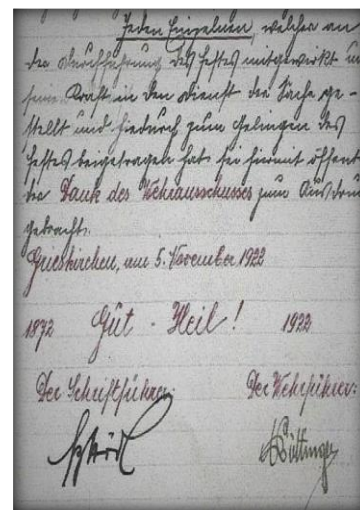 Jeden Einzelnen, welcher an
der Durchführung des Festes mitgewirkt u
seine Kraft in den Dienst der Sache ge-
stellt und hiedurch zum Gelingen des
Festes beigetragen hat, sei hiemit öffent
der Dank des Wehrausschusses zum Ausdru
gebracht.
Grieskirchen, am 5. November 1922
1872 Gut - Heil! 1922
Der Schriftführer: Der Wehrführer: